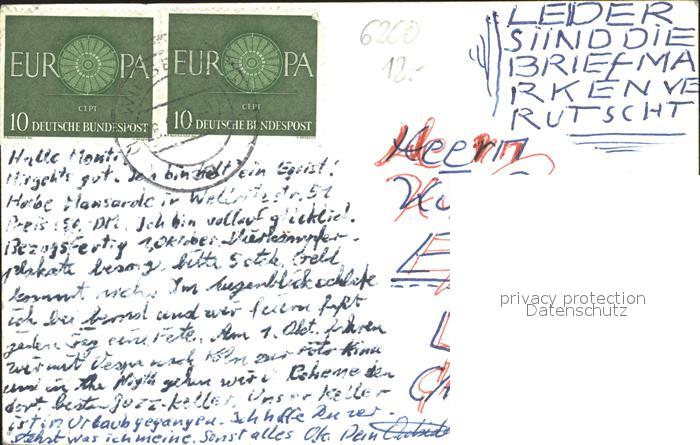 EUROPA
CEPT
10 DEUTSCHE BUNDESPOST
EUROPA
CEPT
10 DEUTSCHE BUNDESPOST
6200
12.-
LEIDER
SIIND DIE
BRIEFMA
RKEN VE
RUTSCHT
Herrn
Hallo Monti
Mir gehts gut. Ich bin halt ein Egoist!
Habe Mansarde in str. 51
Preis 50,- DM. Ich bin vollauf glücklich.
Bezugsfertig 1. Oktober.
plakate besorg. bitte Geld
kommt nach. Im Augenblick schlafe
ich bei Bernd und wir feiern fast
jeden Tag eine Fete. Am 1. Okt. fahren
wir mit Vespa nach Köln zur Foto Kina
und in the Nigth gehen wir i
dort besten Jazz-Keller. Unser Keller
ist in Urlaub gegangen. Ich hoffe Du ver-
stehst was ich meine. Sonst alles Ok. Dein
privacy protection
Datenschutz